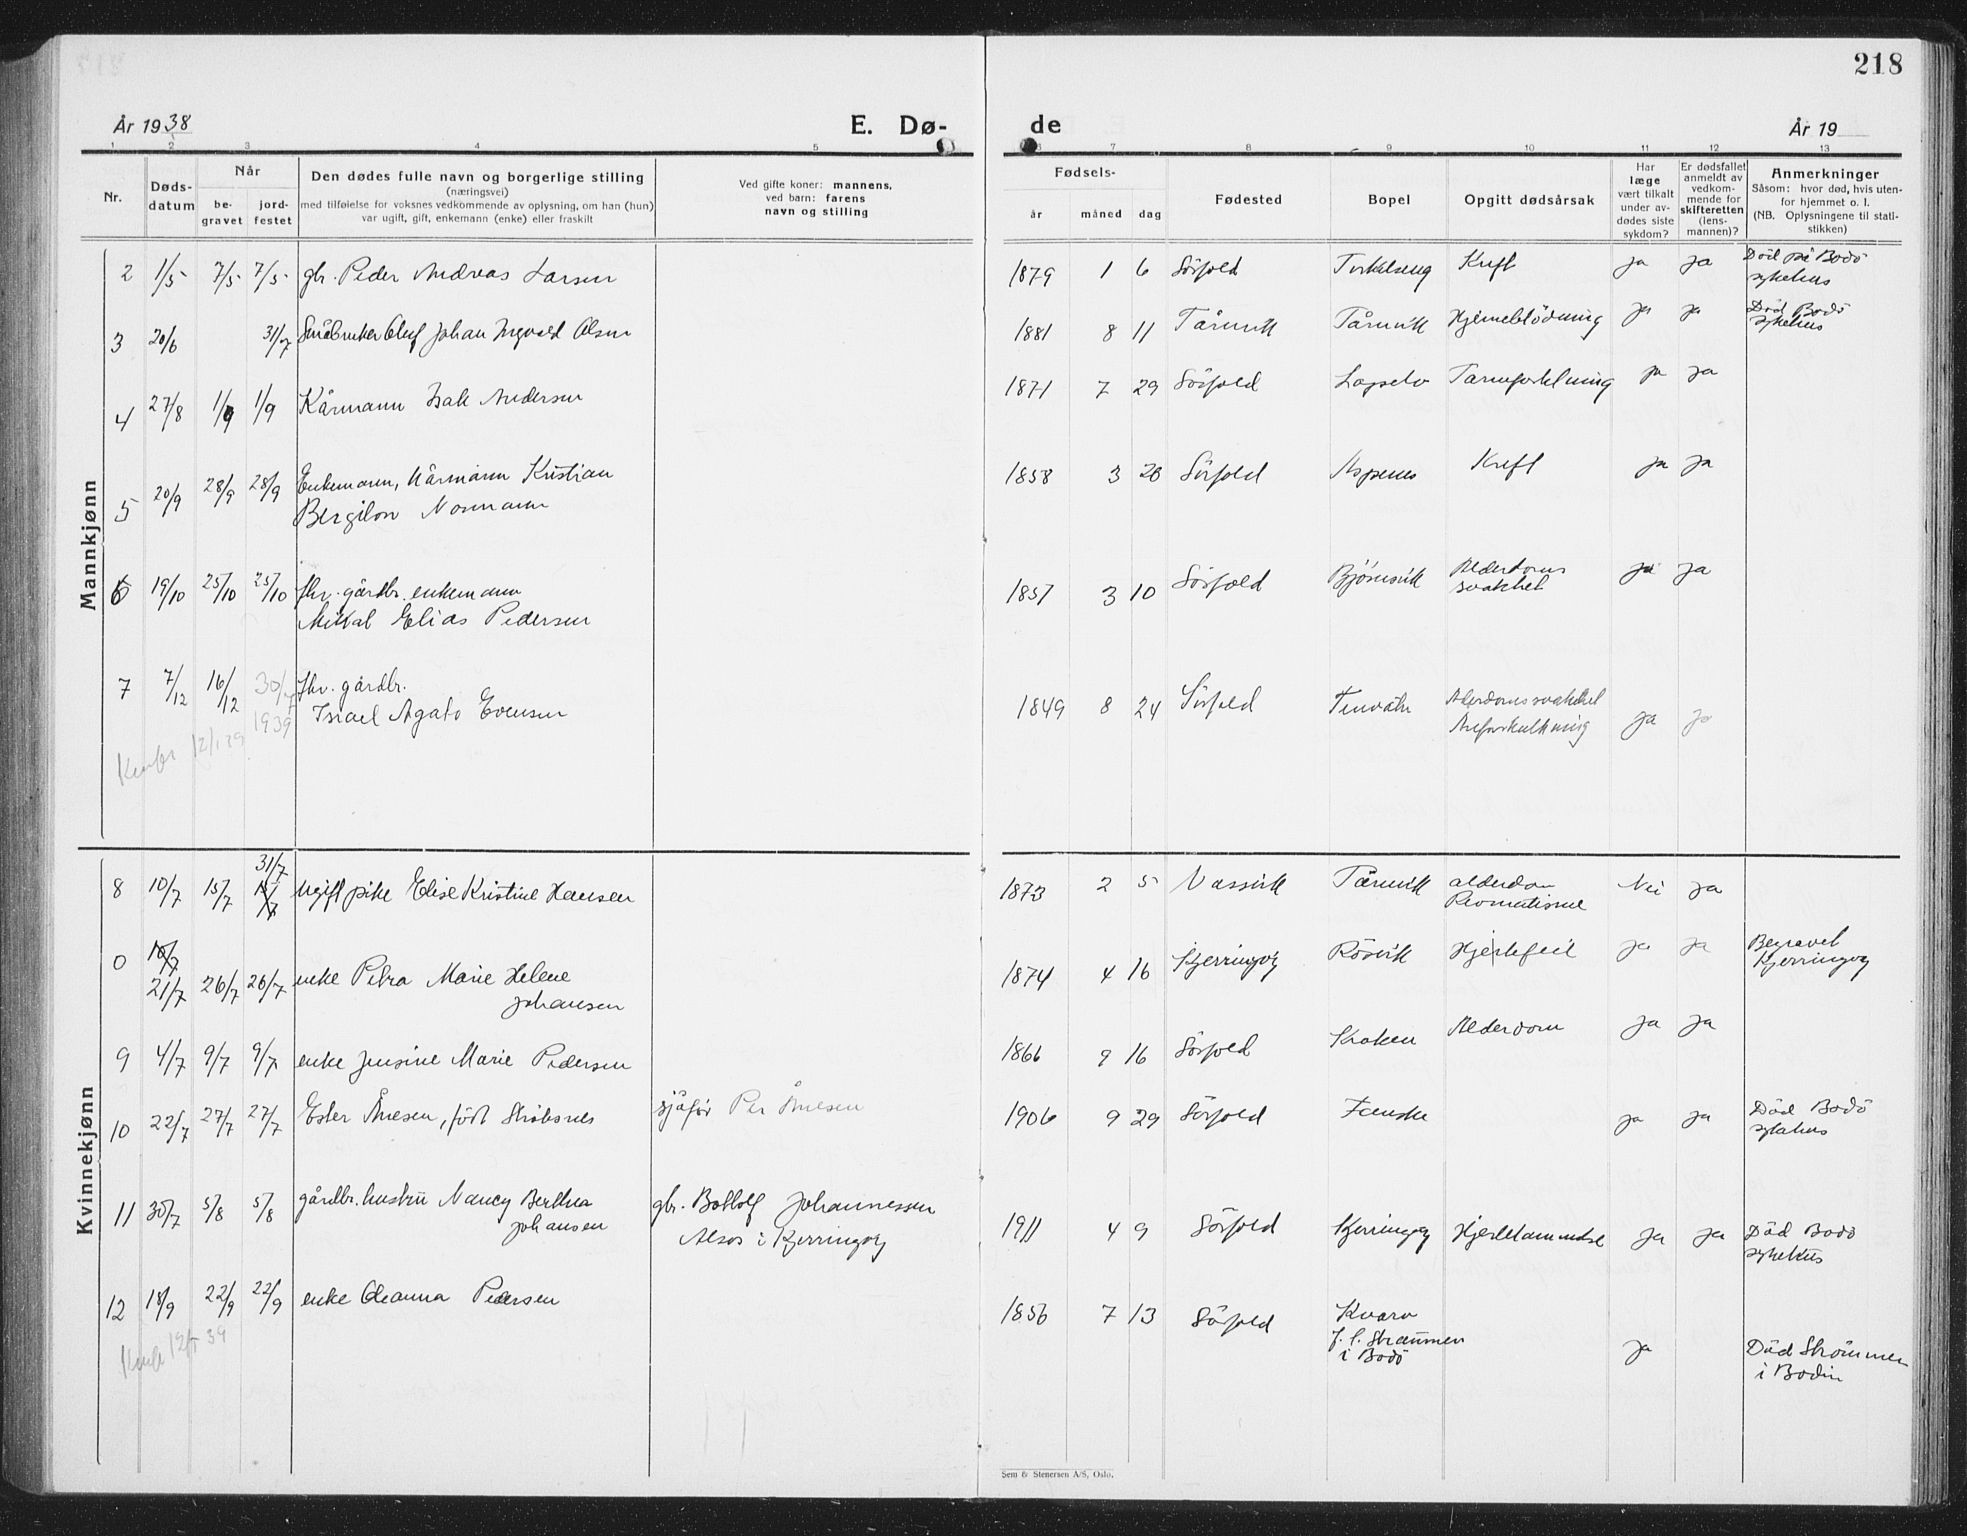 218
År 1938
E. Dø-
de
År 19
1 2 3 4 5 6 7 8 9 10 11 12 13
Nr.
Døds-
datum
Når
be-
gravet
jord-
festet
Den dødes fulle navn og borgerlige stilling
(næringsvei)
med tilføielse for voksnes vedkommende av oplysning, om han (hun)
var ugift, gift, enkemann (enke) eller fraskilt
Ved gifte koner: mannens,
ved barn: farens
navn og stilling
Fødsels-
år måned dag
Fødested
Bopel
Opgitt dødsårsak
Har
læge
vært tilkalt
under av-
dødes siste
sykdom?
Er dødsfallet
anmeldt av
vedkom-
mende for
skifteretten
(lens-
mannen)?
Anmerkninger
Såsom: hvor død, hvis uten-
for hjemmet o. l.
(NB. Oplysningene til stati-
stikken)
Mannkjønn
2 1/5 7/5 7/5 gbr. Peder Andreas Larsen 1879 1 6 Sörfold Kreft ja ja Död på Bodö
sykehus
3 20/6 31/7 Småbruker Oluf Johan Ingvald Olsen 1881 8 11 Tårnvik Tårnvik Hjerneblödning ja ja Död Bodö
sykehus
4 27/8 1/9 1/9 Kårmann Isak Andersen 1871 7 29 Sörfold ja ja
5 20/9 28/9 28/9 Enkemann, Kårmann Kristian
Normann 1858 3 28 Sörfold Aspenes Kreft ja ja
6 19/10 25/10 25/10 fhv. gårdbr. enkemann
Mikal Elias Pedersen 1857 3 10 Sörfold Bjørnsvik Alderdoms
svakhet ja ja
7 7/12 16/12 30/7
1939 fhv. gårdbr.
Israel Agato Evensen 1849 8 24 Sörfold Alderdomssvakhet
Areforkalkning ja ja
Kvinnekjønn
8 10/7 15/7 31/7 ugift pike Elise Kristine Hansen 1873 2 5 Vassvik Tårnvik alderdom
Revmatisme Nei ja
0 10/7
21/7 26/7 26/7 enke Petra Marie Helene
Johansen 1874 4 16 Kjerringøy Rösvik Hjertefeil ja ja Begravet
Kjerringøy
9 4/7 9/7 9/7 enke Jensine Marie Pedersen 1866 9 16 Sörfold Kraken Alderdom ja ja
10 22/7 27/7 27/7 Ester født sjåför Per 1906 9 29 Sörfold Fauske ja ja Död Bodö
sykehus
11 30/7 5/8 5/8 gårdbr. hustru Nancy Berthea
Johansen gbr. Botholf Johannessen
Alsos i Kjerringøy 1911 4 9 Sörfold Kjerringøy ja ja Död Bodö
sykehus
12 18/9 22/9 22/9 enke Oleanna Pedersen 1856 7 13 Sörfold Kvarv
f. t. Straumen
i Bodö ja Död Strömmen
i Bodin
Sem & Stenersen A/S, Oslo.